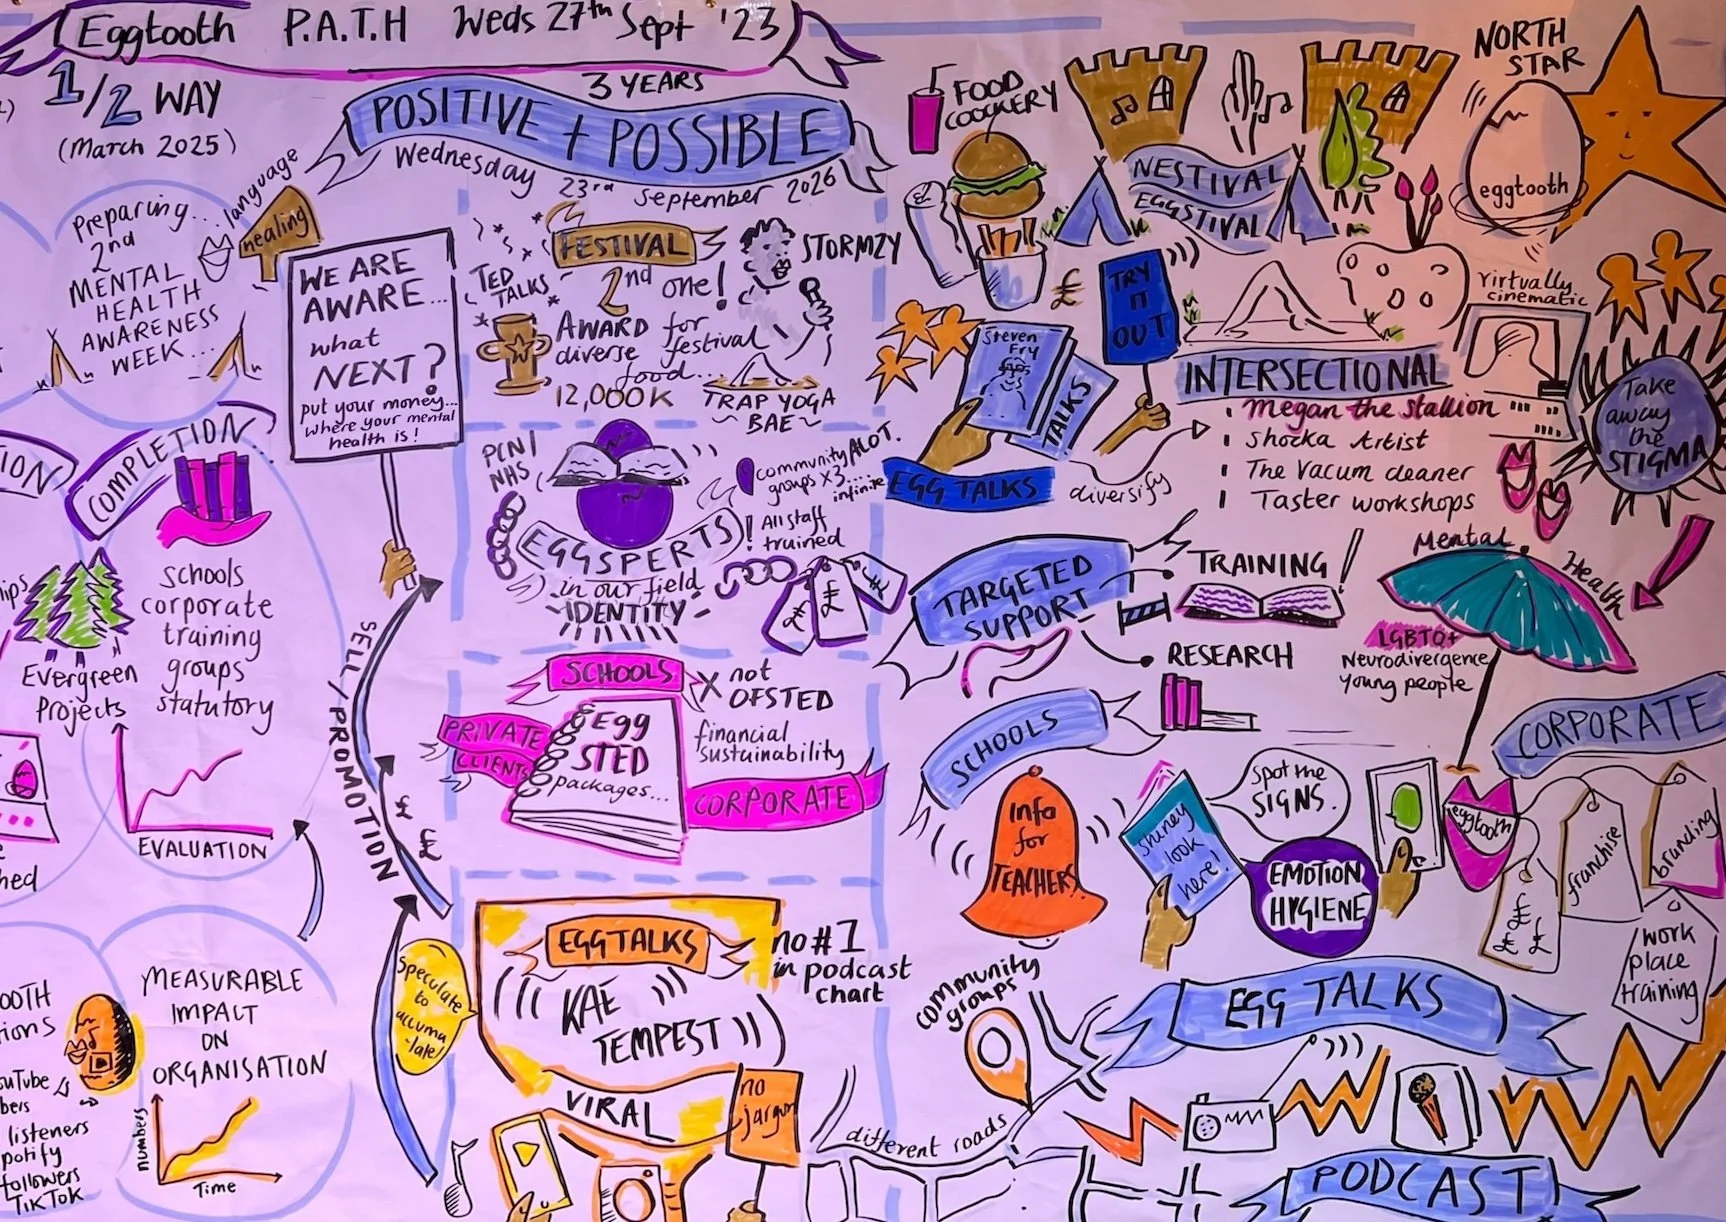 Eggtooth P.A.T.H Weds 27th Sept '23
1/2 WAY
(March 2025)
Preparing..
2nd
MENTAL
HEALTH
AWARENESS
WEEK...
language
healing
WE ARE
AWARE...
what
NEXT?
put your money...
where your mental
health is!
COMPLETION.
ION
hips
Evergreen
Projects
Schools
corporate
training
groups
statutory
EVALUATION
hed
SELL / PROMOTION
£ ££
OOTH
ions
ouTube
bers
listeners
potify
followers
TikTok
MEASURABLE
IMPACT
ON
ORGANISATION
numbers
Time
Speculate
to
accumu
-late!
3 YEARS
POSITIVE + POSSIBLE
Wednesday 23rd September 2026
TED
TALKS
FESTIVAL
2nd one!
STORMZY
AWARD for
diverse festival
food...
12,000K
TRAP YOGA
~ BAE ~
PCN/
NHS
community ALOT.
groups x3... infinite
! All staff
trained
EGGSPERTS
in our field
IDENTITY
£ £ £
SCHOOLS
X not
OFSTED
PRIVATE
CLIENTS
Egg
STED
packages...
financial
sustainability
CORPORATE
EGGTALKS
no#1
in podcast
chart
KAE
TEMPEST
VIRAL
no
jargon
FOOD
COOCKERY
NESTIVAL
EGGSTIVAL
NORTH
STAR
eggtooth
£
TRY
IT
OUT
virtually
cinematic
Steven
Fry
TALKS
EGG TALKS
diversify
INTERSECTIONAL
Megan the Stallion
Shocka Artist
The Vacum cleaner
Taster workshops
Take
away
the
STIGMA
TARGETED
SUPPORT
TRAINING!
RESEARCH
Mental Health
LGBTQ+
Neurodivergence
young people
SCHOOLS
Info
for
TEACHERS
Shiney
look
here!
Spot the
SIGNS.
EMOTION
HYGIENE
CORPORATE
eggtooth
£ £ £ £
franchise
branding
work
place
training
community
groups
different roads
EGG TALKS
PODCAST